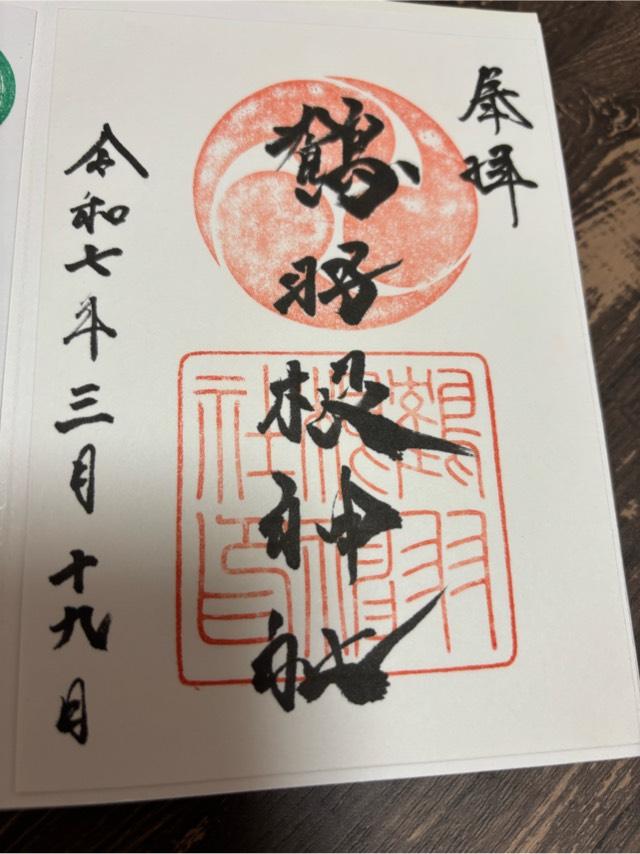 奉拝
鶴羽根神社
鶴羽
根神
社印
令和七年三月十九日